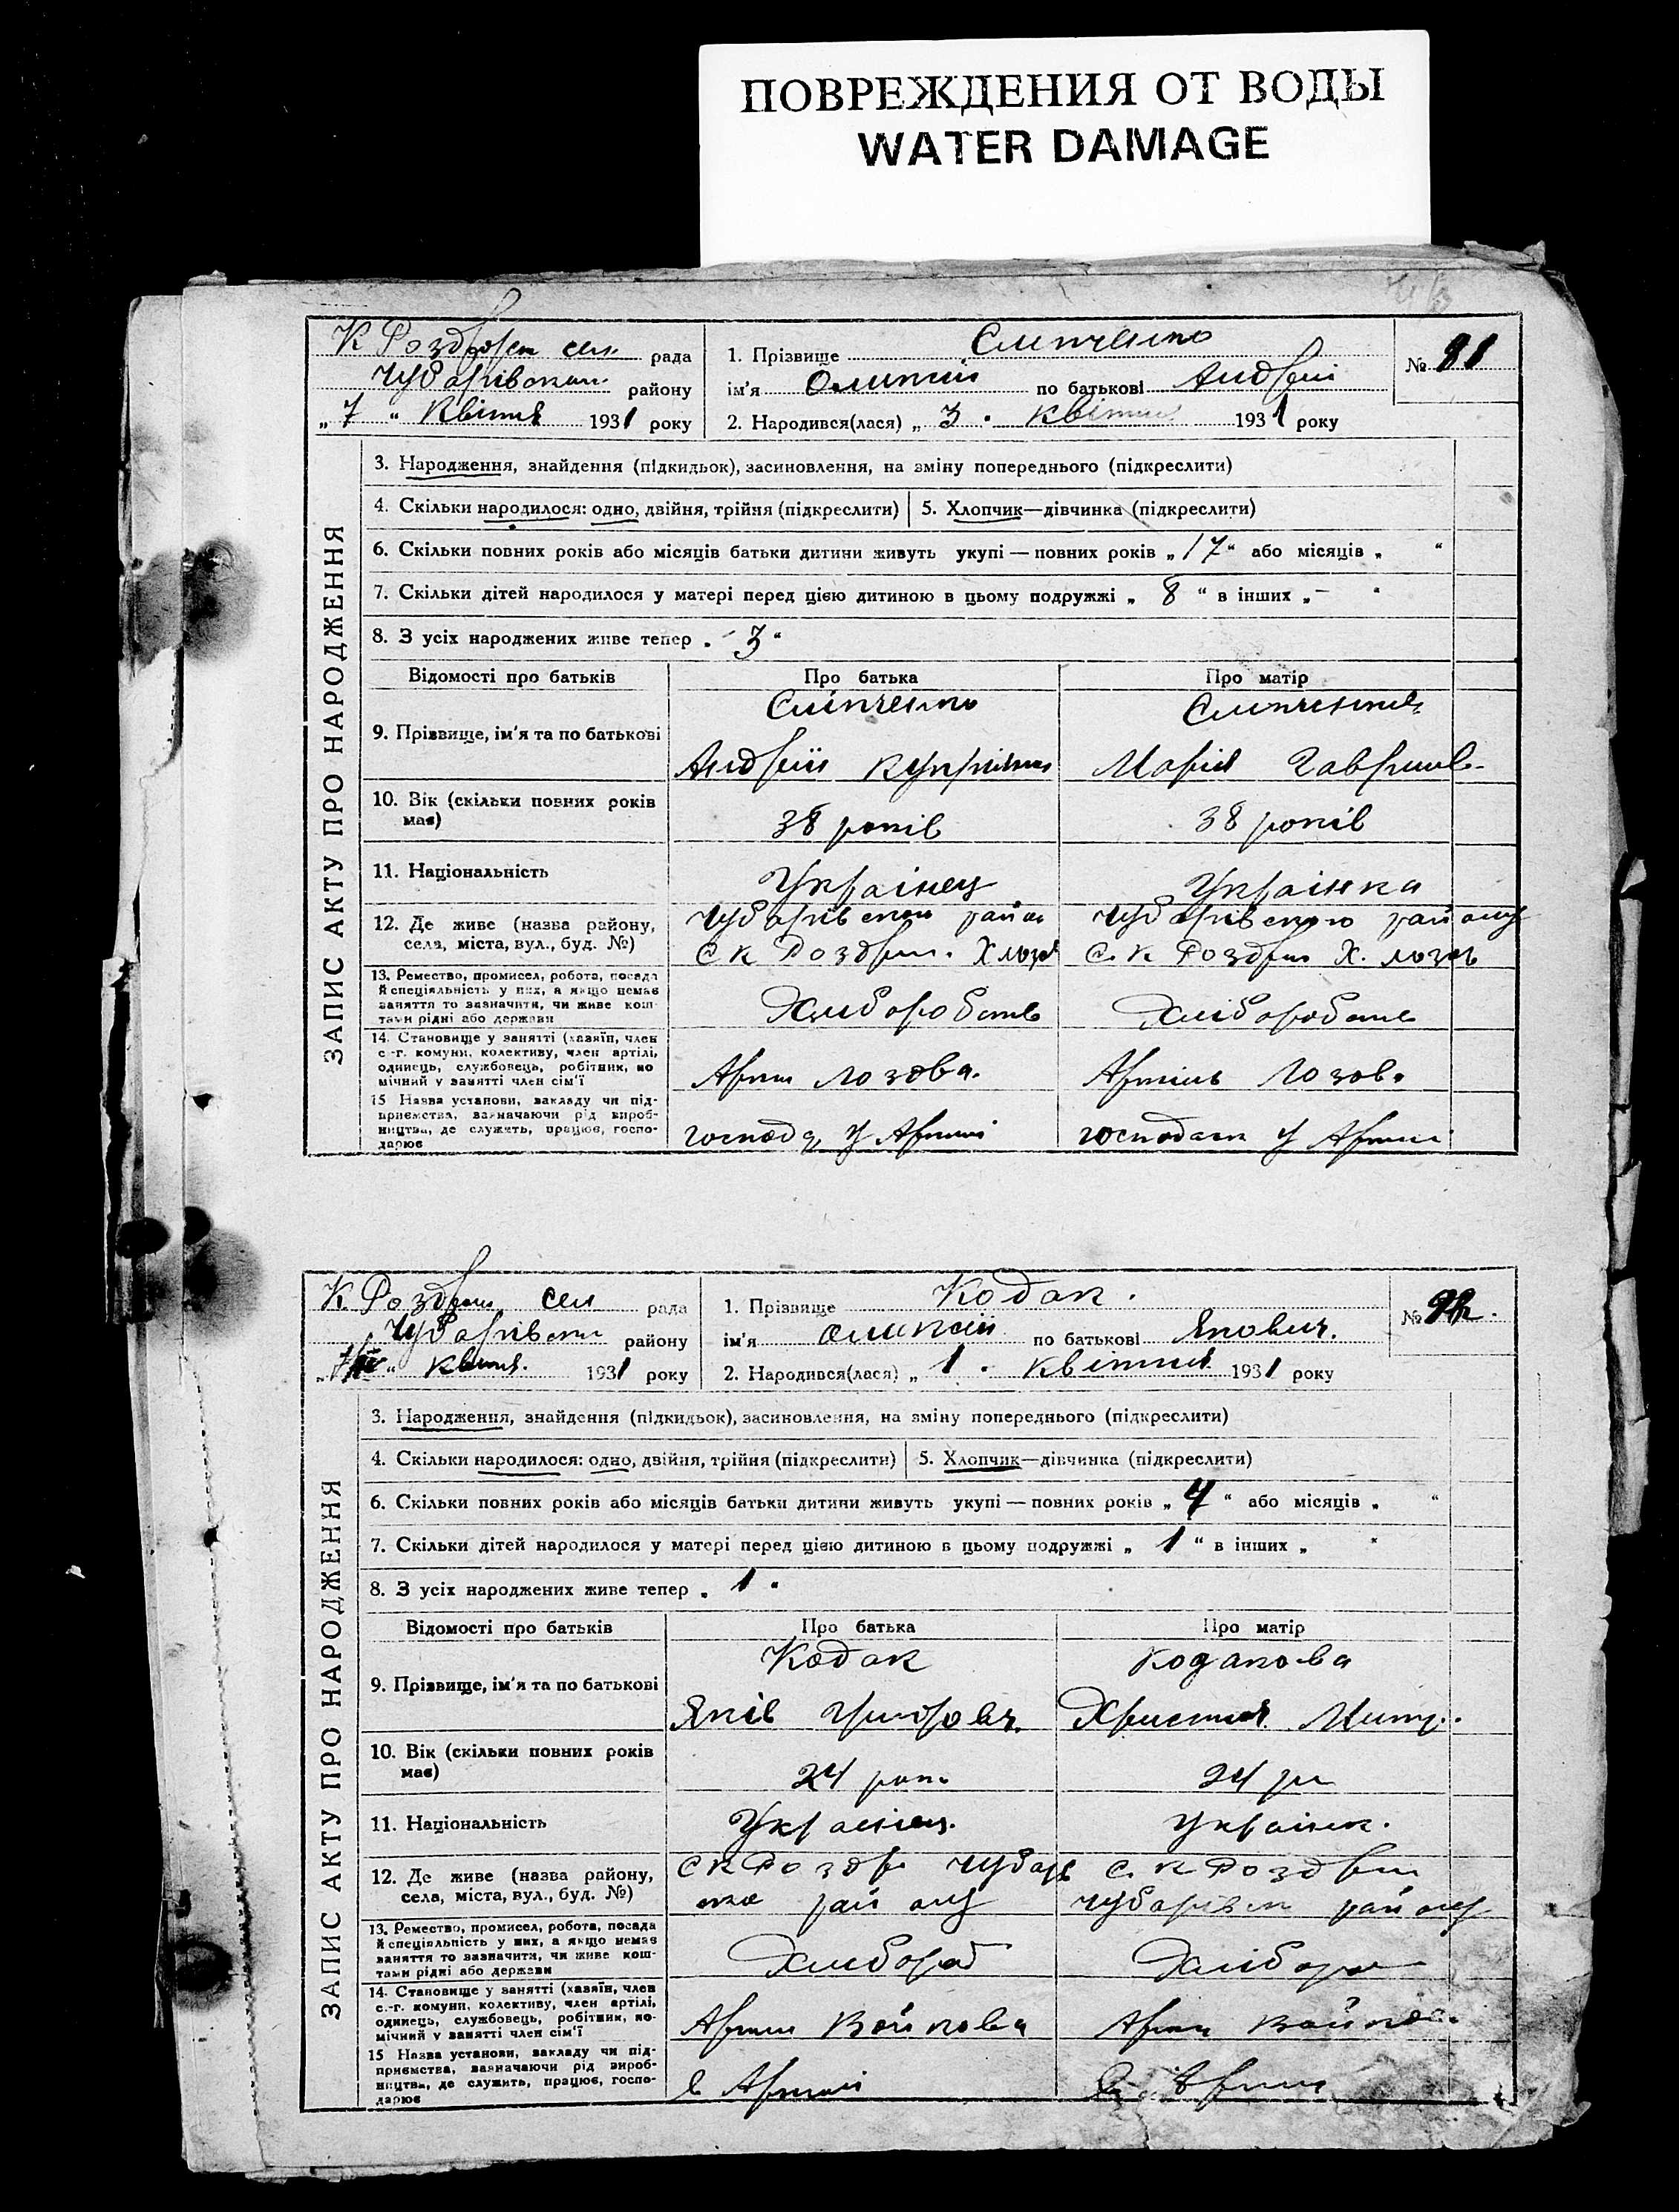 ПОВРЕЖДЕНИЯ ОТ ВОДЫ
WATER DAMAGE
К Роздорск сель рада
Чубарівськ району
„ 7 “ Квітня 1931 року
1. Прізвище Слипченко
ім'я Олексій по батькові Андрей
2. Народився(лася) „ 3 “ квітня 1931 року
№ 81
ЗАПИС АКТУ ПРО НАРОДЖЕННЯ
3. Народження, знайдення (підкидьок), засиновлення, на зміну попереднього (підкреслити)
4. Скільки народилося: одно, двійня, трійня (підкреслити)
5. Хлопчик—дівчинка (підкреслити)
6. Скільки повних років або місяців батьки дитини живуть укупі — повних років „ 17 “ або місяців „ “
7. Скільки дітей народилося у матері перед цією дитиною в цьому подружжі „ 8 “ в інших „ – “
8. З усіх народжених живе тепер „ 3 “
Відомості про батьків Про батька Про матір
9. Прізвище, ім'я та по батькові
Сліпченко
Андрій
Марія Гаврилів
10. Вік (скільки повних років має)
38 років 38 років
11. Національність
Українец Українка
12. Де живе (назва району, села, міста, вул., буд. №)
Чубарівського район
С К Роздри. Х лозов
Чубарівського району
С. К Роздри Х. лозов
13. Ремество, промисел, робота, посада й спеціяльність у них, а якщо немає заняття то зазначити, чи живе коштами рідні або держави
Хлиборобств Хліборобств
14. Становище у занятті (хазяїн, член с.-г. комуни, колективу, член артілі, одинець, службовець, робітник, помічний у занятті член сім'ї
Артіль Лозова. Артіль Лозова
15 Назва установи, закладу чи підприємства, зазначаючи рід виробництва, де служить, працює, господарює
господар У Артилі господарь У Артилі
К. Роздри сель рада
Чубарівськ району
Квітня. 1931 року
1. Прізвище Кодак.
ім'я Олексій по батькові Якович.
2. Народився(лася) „ 1 “ квітня 1931 року
№ 92.
ЗАПИС АКТУ ПРО НАРОДЖЕННЯ
3. Народження, знайдення (підкидьок), засиновлення, на зміну попереднього (підкреслити)
4. Скільки народилося: одно, двійня, трійня (підкреслити)
5. Хлопчик—дівчинка (підкреслити)
6. Скільки повних років або місяців батьки дитини живуть укупі — повних років „ 4 “ або місяців „ “
7. Скільки дітей народилося у матері перед цією дитиною в цьому подружжі „ 1 “ в інших „ “
8. З усіх народжених живе тепер „ 1 “
Відомості про батьків Про батька Про матір
9. Прізвище, ім'я та по батькові
Кодак
Яків
Кодакова
Христия
10. Вік (скільки повних років має)
24 рок 24 ро
11. Національність
Українец. Українк.
12. Де живе (назва району, села, міста, вул., буд. №)
С К Роздр Чубарів
ско району
С. К Роздри
Чубарівськ району
13. Ремество, промисел, робота, посада й спеціяльність у них, а якщо немає заняття то зазначити, чи живе коштами рідні або держави
Хлибороб Хлібороб
14. Становище у занятті (хазяїн, член с.-г. комуни, колективу, член артілі, одинець, службовець, робітник, помічний у занятті член сім'ї
Артиль Войкова Артиль Войкова
15 Назва установи, закладу чи підприємства, зазначаючи рід виробництва, де служить, працює, господарює
в Артилі